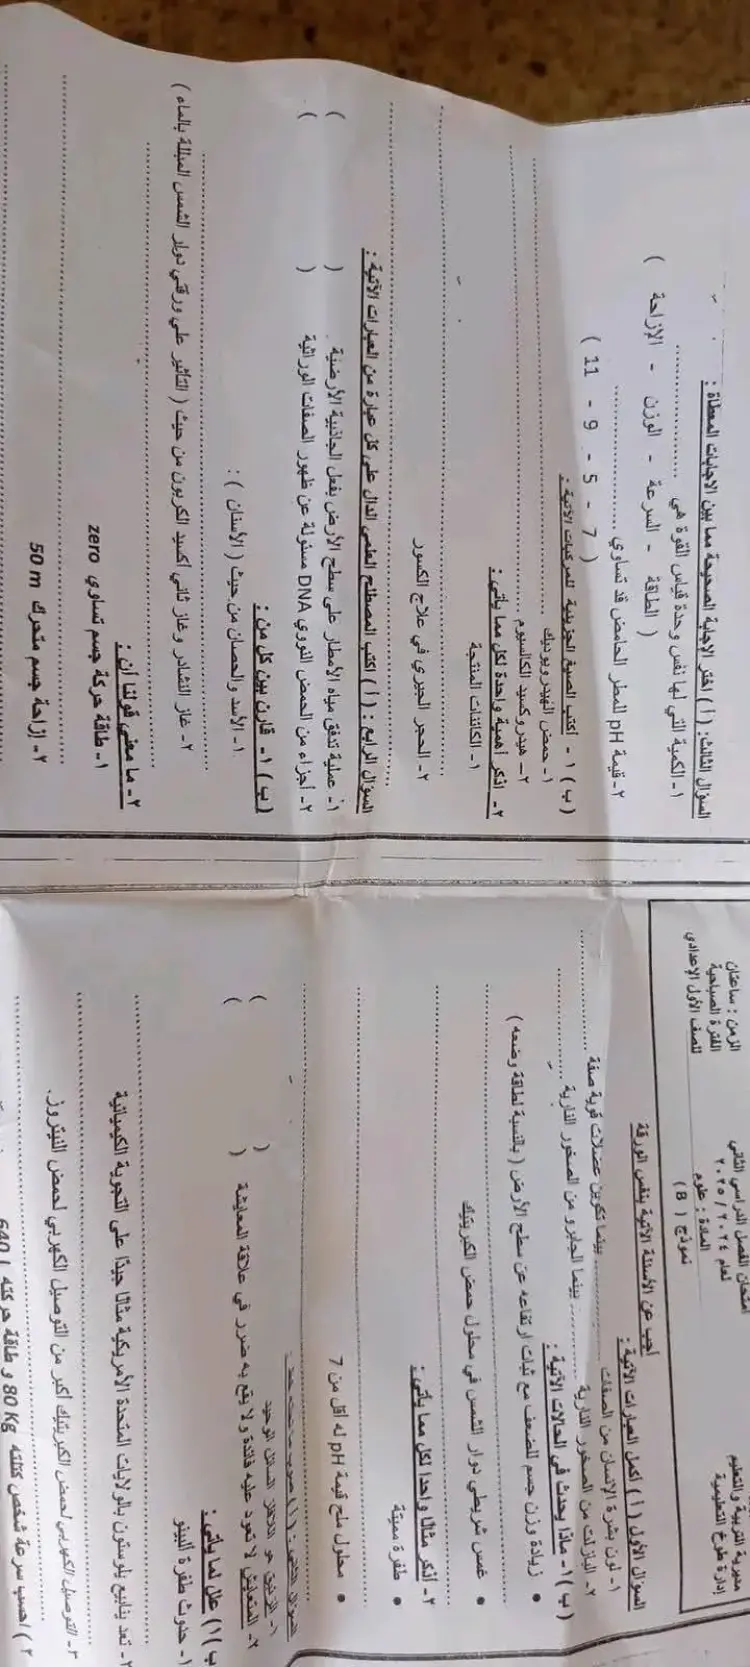 مديرية التربية والتعليم
إدارة طوخ التعليمية
امتحان الفصل الدراسي الثاني
لعام ٢٠٢٤ / ٢٠٢٥
المادة : علوم
نموذج ( B )
الزمن : ساعتان
الفترة الصباحية
للصف الأول الإعدادي
أجب عن الأسئلة الآتية بنفس الورقة
السؤال الأول ( أ ) أكمل العبارات الآتية :
١- لون بشرة الإنسان من الصفات .......... بينما تكوين عضلات قوية صفة ..........
٢- البازلت من الصخور النارية .......... بينما الجابرو من الصخور النارية ..........
( ب ) ١- ماذا يحدث في الحالات الآتية :
• زيادة وزن جسم للضعف مع ثبات ارتفاعه عن سطح الأرض ( بالنسبة لطاقة وضعه )
• غمس شريطي دوار الشمس في محلول حمض الكبريتيك
٢- أذكر مثالًا واحدًا لكل مما يأتي :
• طفرة مميتة
• محلول ملح قيمة pH له أقل من 7
السؤال الثاني : ( أ ) صوب ما تحته خط :
١- الزئبق هو اللافلز السائل الوحيد ( )
٢- المتعايش لا تعود عليه فائدة ولا يقع به ضرر في علاقة المعايشة ( )
ب ) ( ١ ) علل لما يأتي :
١- حدوث طفرة ألبينو
٢- تعد ينابيع يلوستون بالولايات المتحدة الأمريكية مثالًا جيدًا على التجوية الكيميائية
٣- التوصيل الكهربي لحمض الكبريتيك أكبر من التوصيل الكهربي لحمض النيتروز.
٢ ) احسب سرعة شخص كتلته 80 Kg و طاقة حركته 640 J
السؤال الثالث: ( أ ) اختر الإجابة الصحيحة مما بين الاجابات المعطاة :
١- الكمية التي لها نفس وحدة قياس القوة هي ..........
( الطاقة - السرعة - الوزن - الإزاحة )
٢- قيمة pH للمطر الحامض قد تساوي ..........
( 7 - 5 - 9 - 11 )
( ب ) ١ - أكتب الصيغ الجزيئية للمركبات الآتية :
١- حمض الهيدروبروميك ..........
٢- هيدروكسيد الكالسيوم ..........
٢- اذكر أهمية واحدة لكل مما يأتي :
١- الكائنات المنتجة
٢- الحجر الجيري في علاج الكسور
السؤال الرابع : ( أ ) اكتب المصطلح العلمي الدال على كل عبارة من العبارات الآتية :
١- عملية تدفق مياه الأمطار على سطح الأرض بفعل الجاذبية الأرضية ( )
٢- أجزاء من الحمض النووي DNA مسئولة عن ظهور الصفات الوراثية ( )
( ب ) ١- قارن بين كل من :
١- الأسد والحصان من حيث ( الأسنان ) :
٢- غاز النشادر وغاز ثاني أكسيد الكربون من حيث ( التأثير على ورقتي دوار الشمس المبللة بالماء )
٢- ما معنى قولنا أن :
١- طاقة حركة جسم تساوي zero
٢- إزاحة جسم متحرك 50 m